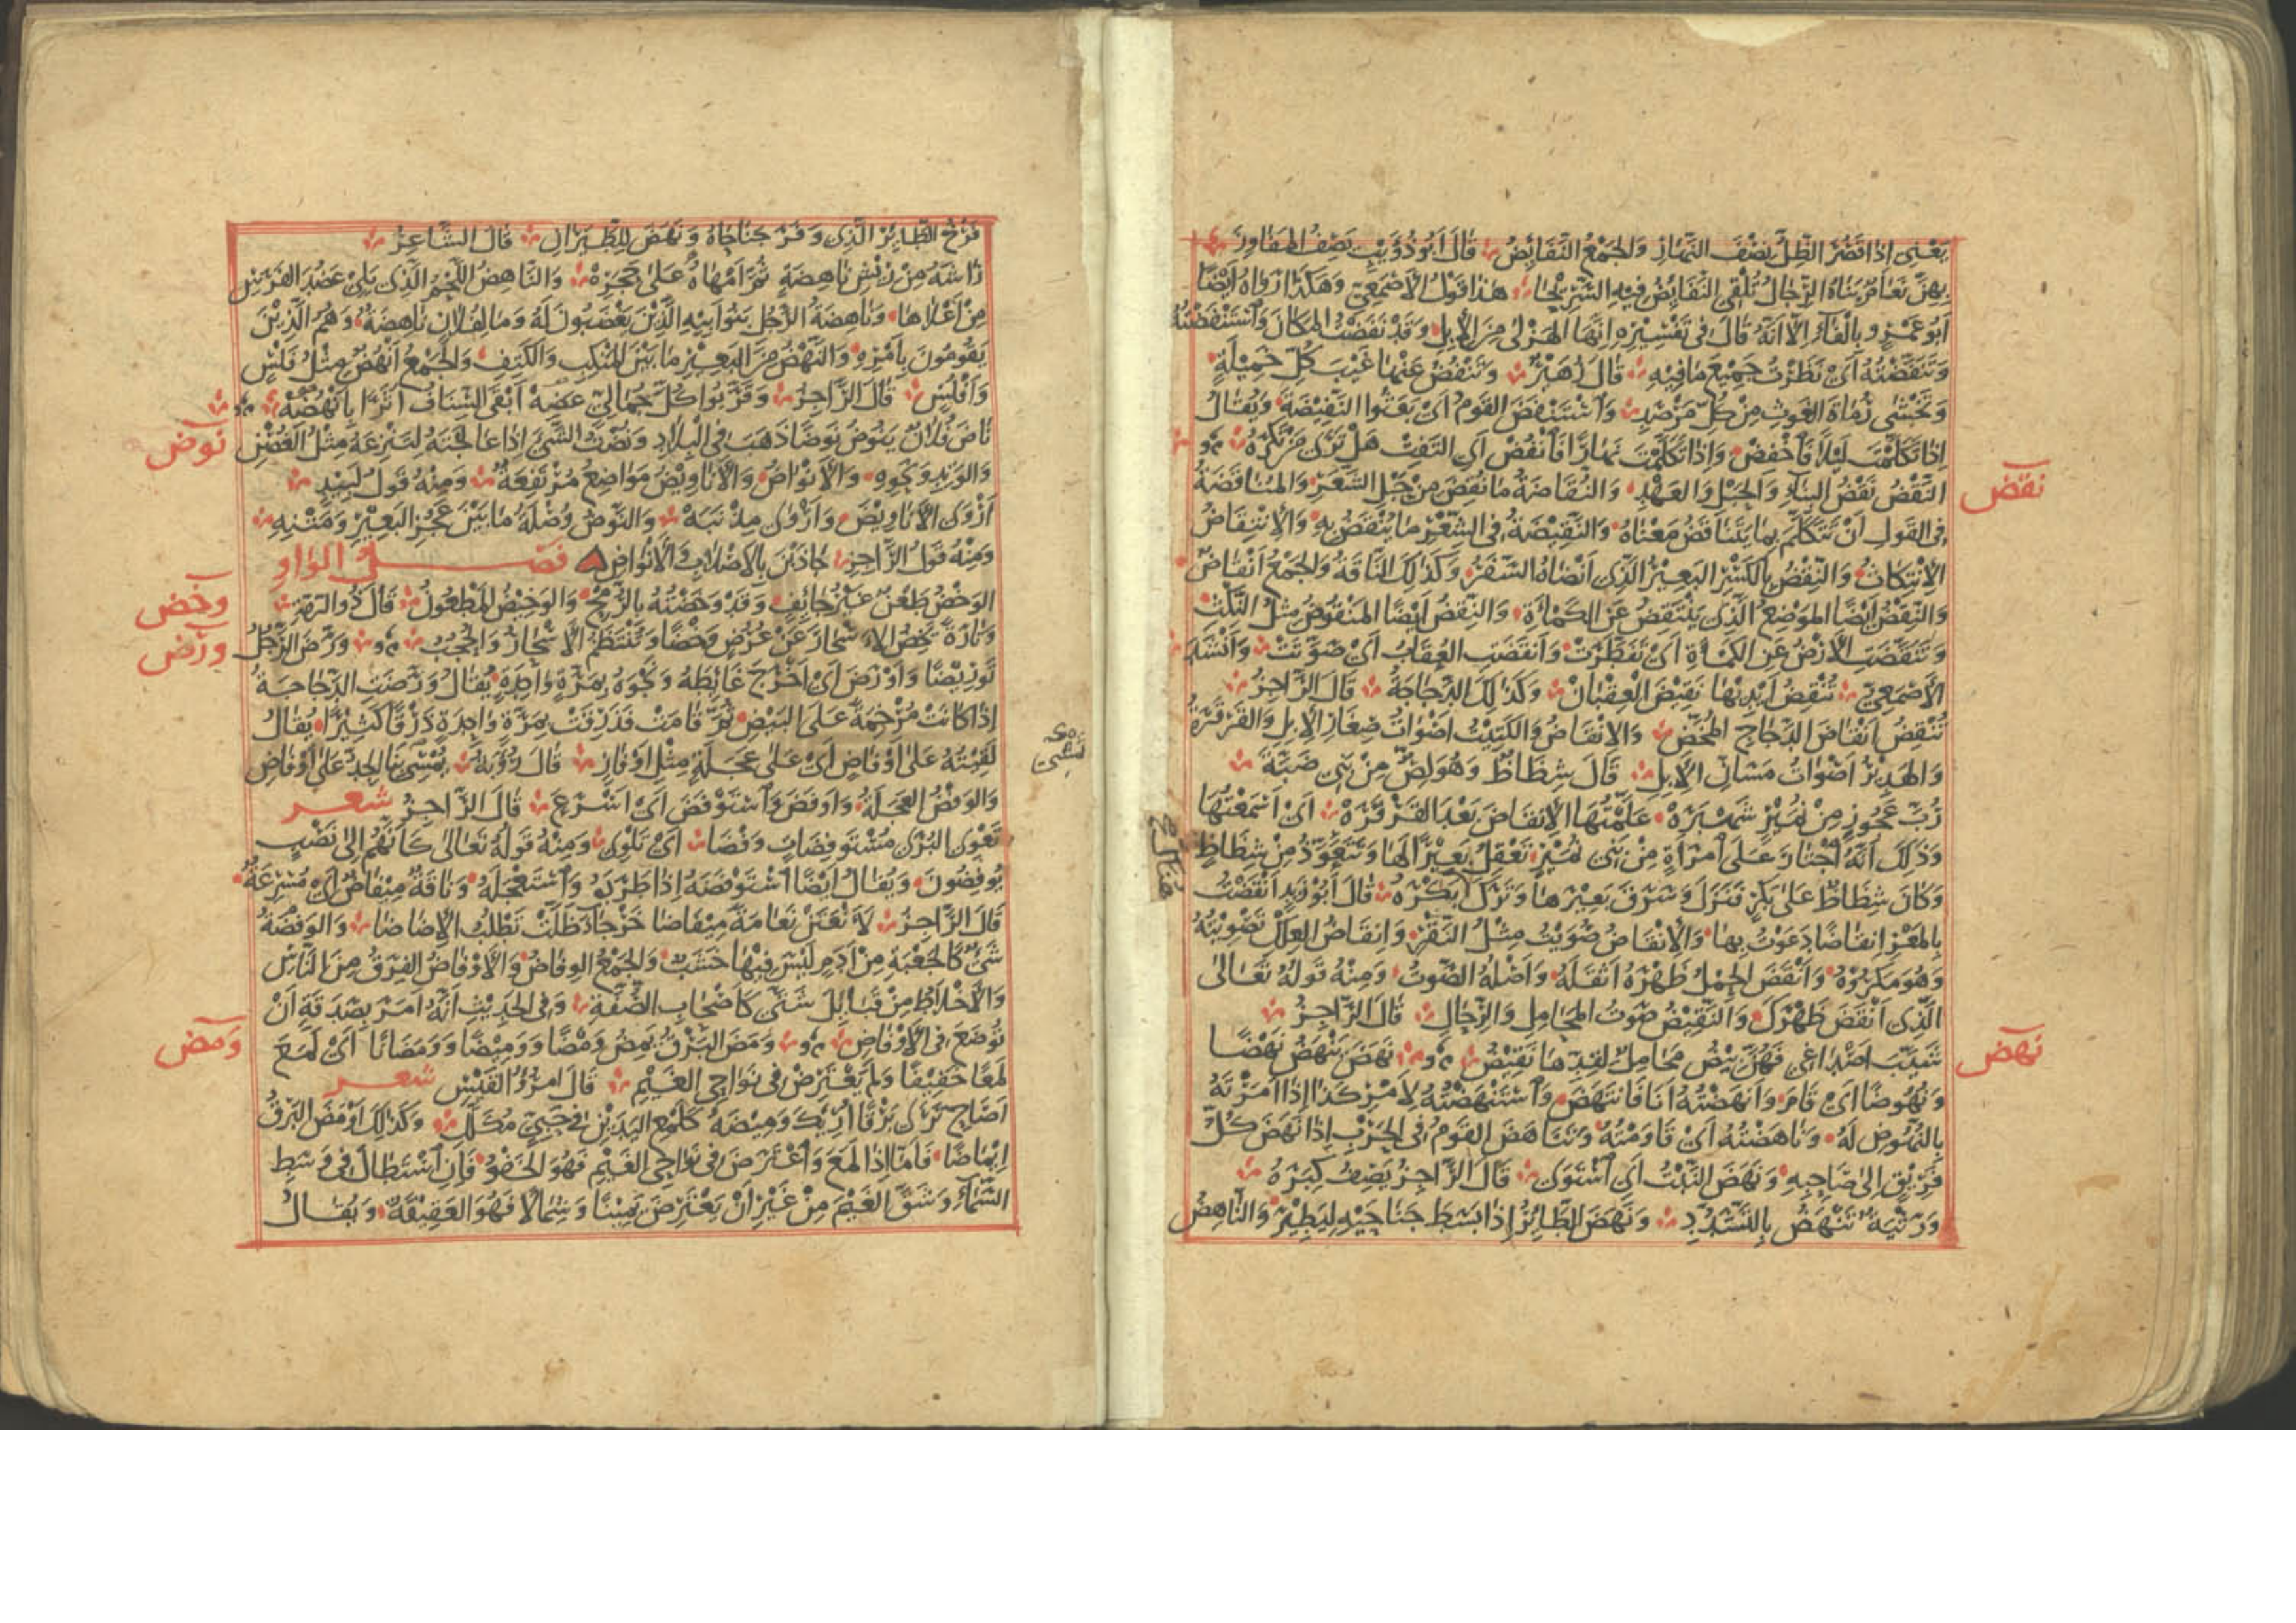 يَعْنِى اِذَا قَصُرَ الظِّلُّ نِصْفَ النَّهَارِ وَالجَمْعُ النَّفَائِضُ قَالَ اَبُو ذُؤَيْبٍ يَصِفُ المَفَاوِزَ
بِهِنَّ نَعَامٌ بَنَاهُ الرِّجَالُ تُلْقِى النَّفَائِضُ فِيهِ السَّرِيْحَا هٰذَا قَوْلُ الاَصْمَعِىِّ وَهٰكَذَا رَوَاهُ اَيْضًا
اَبُو عَمْرٍو بِالْفَاءِ اِلَّا اَنَّهُ قَالَ فِى تَفْسِيْرِهِ اِنَّهَا الهَزْلىٰ مِنَ الاِبِلِ وَقَدْ نَفَضْتُ المَكَانَ وَاسْتَنْفَضْتُهُ
وَتَنَفَّضْتُهُ اَىْ نَظَرْتُ جَمِيْعَ مَا فِيْهِ قَالَ زُهَيْرٌ وَتَنْفُضُ عَنْهَا غَيْبَ كُلِّ خَمِيْلَةٍ
وَتَخْشٰى رُمَاةَ الغَوْثِ مِنْ كُلِّ مَرْصَدِ وَاسْتَنْفَضَ القَوْمُ اَىْ بَعَثُوا النَّفِيْضَةَ وَيُقَالُ
اِذَا تَكَلَّمْتَ لَيْلًا فَاخْفِضْ وَاِذَا تَكَلَّمْتَ نَهَارًا فَانْفُضْ اَىِ التَفِتْ هَلْ تَرٰى مَنْ تَكْرَهُ
نقض
النَّقْضُ نَقْضُ البِنَاءِ وَالحَبْلِ وَالعَهْدِ وَالنُّقَاضَةُ مَا نُقِضَ مِنْ حَبْلِ الشَّعَرِ وَالمُنَاقَضَةُ
فِى القَوْلِ اَنْ تَتَكَلَّمَ بِمَا يَتَنَاقَضُ مَعْنَاهُ وَالنَّقِيْضَةُ فِى الشِّعْرِ مَا يُنْقَضُ بِهِ وَالاِنْتِقَاضُ
الاِنْتِكَاثُ وَالنِّقْضُ بِالكَسْرِ البَعِيْرُ الَّذِى اَنْضَاهُ السَّفَرُ وَكَذٰلِكَ النَّاقَةُ وَالجَمْعُ اَنْقَاضٌ
وَالنِّقْضُ اَيْضًا المَوْضِعُ الَّذِى يَنْتَقِضُ عَنِ الكَمْأَةِ وَالنِّقْضُ اَيْضًا المَنْقُوْضُ مِثْلُ النِّكْثِ
وَتَنَقَّضَتِ الاَرْضُ عَنِ الكَمْأَةِ اَىْ تَفَطَّرَتْ وَاَنْقَضَتِ العُقَابُ اَىْ صَوَّتَتْ وَاَنْشَدَ
الاَصْمَعِىُّ تُنْقِضُ اَيْدِيْهَا نَقِيْضَ العِقْبَانْ وَكَذٰلِكَ الدَّجَاجَةُ قَالَ الرَّاجِزُ
تُنْقِضُ اِنْقَاضَ الدَّجَاجِ المُخَّضِ وَالاِنْقَاضُ وَالكَتِيْتُ اَصْوَاتُ صِغَارِ الاِبِلِ وَالقَرْقَرَةُ
وَالهَدِيْرُ اَصْوَاتُ مَسَانِّ الاِبِلِ قَالَ شِظَاظٌ وَهُوَ لِصٌّ مِنْ بَنِى ضَبَّةَ
رُبَّ عَجُوْزٍ مِنْ نُمَيْرٍ شَهْبَرَهْ عَلَّمْتُهَا الاِنْقَاضَ بَعْدَ القَرْقَرَهْ اَىْ اَسْمَعْتُهَا
وَذٰلِكَ اَنَّهُ اجْتَازَ عَلَى امْرَأَةٍ مِنْ بَنِى نُمَيْرٍ تَعْقِلُ بَعِيْرًا لَهَا وَتَتَعَوَّذُ مِنْ شِظَاظٍ
وَكَانَ شِظَاظٌ عَلٰى بَكْرٍ فَنَزَلَ وَسَرَقَ بَعِيْرَهَا وَتَرَكَ بَكْرَهُ قَالَ اَبُو زَيْدٍ اَنْقَضْتُ
بِالمَعْزِ اِنْقَاضًا دَعَوْتُ بِهَا وَالاِنْقَاضُ صُوَيْتٌ مِثْلُ النَّقْرِ وَاِنْقَاضُ العِلْكِ تَصْوِيْتُهُ
وَهُوَ مَكْرُوْهٌ وَاَنْقَضَ الحِمْلُ ظَهْرَهُ اَثْقَلَهُ وَاَصْلُهُ الصَّوْتُ وَمِنْهُ قَوْلُهُ تَعَالىٰ
الَّذِى اَنْقَضَ ظَهْرَكَ وَالنَّقِيْضُ صَوْتُ المَحَامِلِ وَالرِّحَالِ قَالَ الرَّاجِزُ
نهض
شَيَّبَ اَصْدَاغِى فَهُنَّ بِيْضُ مَحَامِلٌ لِقِدِّهَا نَقِيْضُ نَهَضَ يَنْهَضُ نَهْضًا
وَنُهُوْضًا اَىْ قَامَ وَاَنْهَضْتُهُ اَنَا فَانْتَهَضَ وَاسْتَنْهَضْتُهُ لِاَمْرِ كَذَا اِذَا اَمَرْتَهُ
بِالنُّهُوْضِ لَهُ وَنَاهَضْتُهُ اَىْ قَاوَمْتُهُ وَتَنَاهَضَ القَوْمُ فِى الحَرْبِ اِذَا نَهَضَ كُلُّ
فَرِيْقٍ اِلىٰ صَاحِبِهِ وَنَهَضَ النَّبْتُ اَىِ اسْتَوٰى قَالَ الرَّاجِزُ يَصِفُ كِبَرَهُ
وَرَثْيَةٌ تَنْهَضُ بِالتَّشَدُّدِ وَنَهَضَ الطَّائِرُ اِذَا بَسَطَ جَنَاحَيْهِ لِيَطِيْرَ وَالنَّاهِضُ
فَرْخُ الطَّائِرِ الَّذِى وَفُرَ جَنَاحَاهُ وَنَهَضَ لِلطَّيَرَانِ قَالَ الشَّاعِرُ
رَاشَهُ مِنْ رِيْشِ نَاهِضَةٍ ثُمَّ اَمْهَاهُ عَلىٰ حَجَرِهْ وَالنَّاهِضُ اللَّحْمُ الَّذِى يَلِى عَضُدَ الفَرَسِ
مِنْ اَعْلَاهَا وَنَاهِضَةُ الرَّجُلِ بَنُو اَبِيْهِ الَّذِيْنَ يَغْضَبُوْنَ لَهُ وَمَا لِفُلَانٍ نَاهِضَةٌ وَهُمُ الَّذِيْنَ
يَقُوْمُوْنَ بِاَمْرِهِ وَالنَّهْضُ مِنَ البَعِيْرِ مَا بَيْنَ المَنْكِبِ وَالكَتِفِ وَالجَمْعُ اَنْهُضٌ مِثْلُ فَلْسٍ
وَاَفْلُسٍ قَالَ الرَّاجِزُ وَقَرَّبُوا كُلَّ جُمَالِىٍّ عَضِهْ اَبْقَى السِّنَافُ اَثَرًا بِاَنْهُضِهْ
نوض
نَاضَ فُلَانٌ يَنُوْضُ نَوْضًا ذَهَبَ فِى البِلَادِ وَنُضْتُ الشَّىْءَ اِذَا عَالَجْتَهُ لِتَنْزِعَهُ مِثْلُ الغُصْنِ
وَالوَتِدِ وَنَحْوِهِ وَالاَنْوَاضُ وَالاَنَاوِيْضُ مَوَاضِعُ مُرْتَفِعَةٌ وَمِنْهُ قَوْلُ لَبِيْدٍ
اَرْوَى الاَنَاوِيْضَ وَاَرْوٰى مِذْنَبَهْ وَالنَّوْضُ وُصْلَةُ مَا بَيْنَ عَجُزِ البَعِيْرِ وَمَتْنِهِ
وَمِنْهُ قَوْلُ الرَّاجِزِ جَاذَبْنَ بِالاَصْلَابِ وَالاَنْوَاضِ فصل الواو
وخض
الوَخْضُ طَعْنٌ غَيْرُ جَائِفٍ وَقَدْ وَخَضْتُهُ بِالرُّمْحِ وَالوَخِيْضُ المَطْعُوْنُ قَالَ ذُو الرُّمَّةِ
ورض
وَتَارَةً يَخِضُ الاَسْحَارَ عَنْ عُرُضٍ وَخْضًا وَتُنْتَظَمُ الاَسْحَارُ وَالحُجُبُ وَرَّضَ الرَّجُلُ
تَوْرِيْضًا وَاَوْرَضَ اَىْ اَخْرَجَ غَائِطَهُ وَنَجْوَهُ بِمَرَّةٍ وَاحِدَةٍ يُقَالُ وَرَّضَتِ الدَّجَاجَةُ
اِذَا كَانَتْ مُرْخِمَةً عَلَى البَيْضِ ثُمَّ قَامَتْ فَذَرَقَتْ بِمَرَّةٍ وَاحِدَةٍ ذَرْقًا كَثِيْرًا يُقَالُ
لَقِيْتُهُ عَلىٰ اَوْفَاضٍ اَىْ عَلىٰ عَجَلَةٍ مِثْلِ اَوْفَازٍ قَالَ رُؤْبَةُ يُمْسِى بِنَا الجِدُّ عَلىٰ اَوْفَاضِ
وَالوَفْضُ العَجَلَةُ وَاَوْفَضَ وَاسْتَوْفَضَ اَىْ اَسْرَعَ قَالَ الرَّاجِزُ شعر
تَعْوِى البُرٰى مُسْتَوْفِضَاتٍ وَفْضَا اَىْ تَلْوِى وَمِنْهُ قَوْلُهُ تَعَالىٰ كَاَنَّهُمْ اِلىٰ نَصْبٍ
يُوْفِضُوْنَ وَيُقَالُ اَيْضًا اسْتَوْفَضَهُ اِذَا طَرَدَهُ وَاسْتَعْجَلَهُ وَنَاقَةٌ مِيْفَاضٌ اَىْ مُسْرِعَةٌ
قَالَ الرَّاجِزُ لَاَنْعَتَنْ نَعَامَةً مِيْفَاضَا خَرْجَاءَ ظَلَّتْ تَطْلُبُ الاِضَاضَا وَالوَفْضَةُ
شَىْءٌ كَالجَعْبَةِ مِنْ اَدَمٍ لَيْسَ فِيْهَا خَشَبٌ وَالجَمْعُ الوِفَاضُ وَالاَوْفَاضُ الفِرَقُ مِنَ النَّاسِ
وَالاَخْلَاطُ مِنْ قَبَائِلَ شَتّٰى كَاَصْحَابِ الصُّفَّةِ وَفِى الحَدِيْثِ اَنَّهُ اَمَرَ بِصَدَقَةٍ اَنْ
ومض
تُوْضَعَ فِى الاَوْفَاضِ وَمَضَ البَرْقُ يَمِضُ وَمْضًا وَوَمِيْضًا وَوَمَضَانًا اَىْ لَمَعَ
لَمْعًا خَفِيْفًا وَلَمْ يَعْتَرِضْ فِى نَوَاحِى الغَيْمِ قَالَ امْرُؤُ القَيْسِ شعر
اَصَاحِ تَرٰى بَرْقًا اُرِيْكَ وَمِيْضَهُ كَلَمْعِ اليَدَيْنِ فِى حَبِىٍّ مُكَلَّلِ وَكَذٰلِكَ اَوْمَضَ البَرْقُ
اِيْمَاضًا فَاَمَّا اِذَا لَمَعَ وَاعْتَرَضَ فِى نَوَاحِى الغَيْمِ فَهُوَ الخَفْوُ فَاِنِ اسْتَطَالَ فِى وَسَطِ
السَّمَاءِ وَشَقَّ الغَيْمَ مِنْ غَيْرِ اَنْ يَعْتَرِضَ يَمِيْنًا وَشِمَالًا فَهُوَ العَقِيْقَةُ وَيُقَالُ